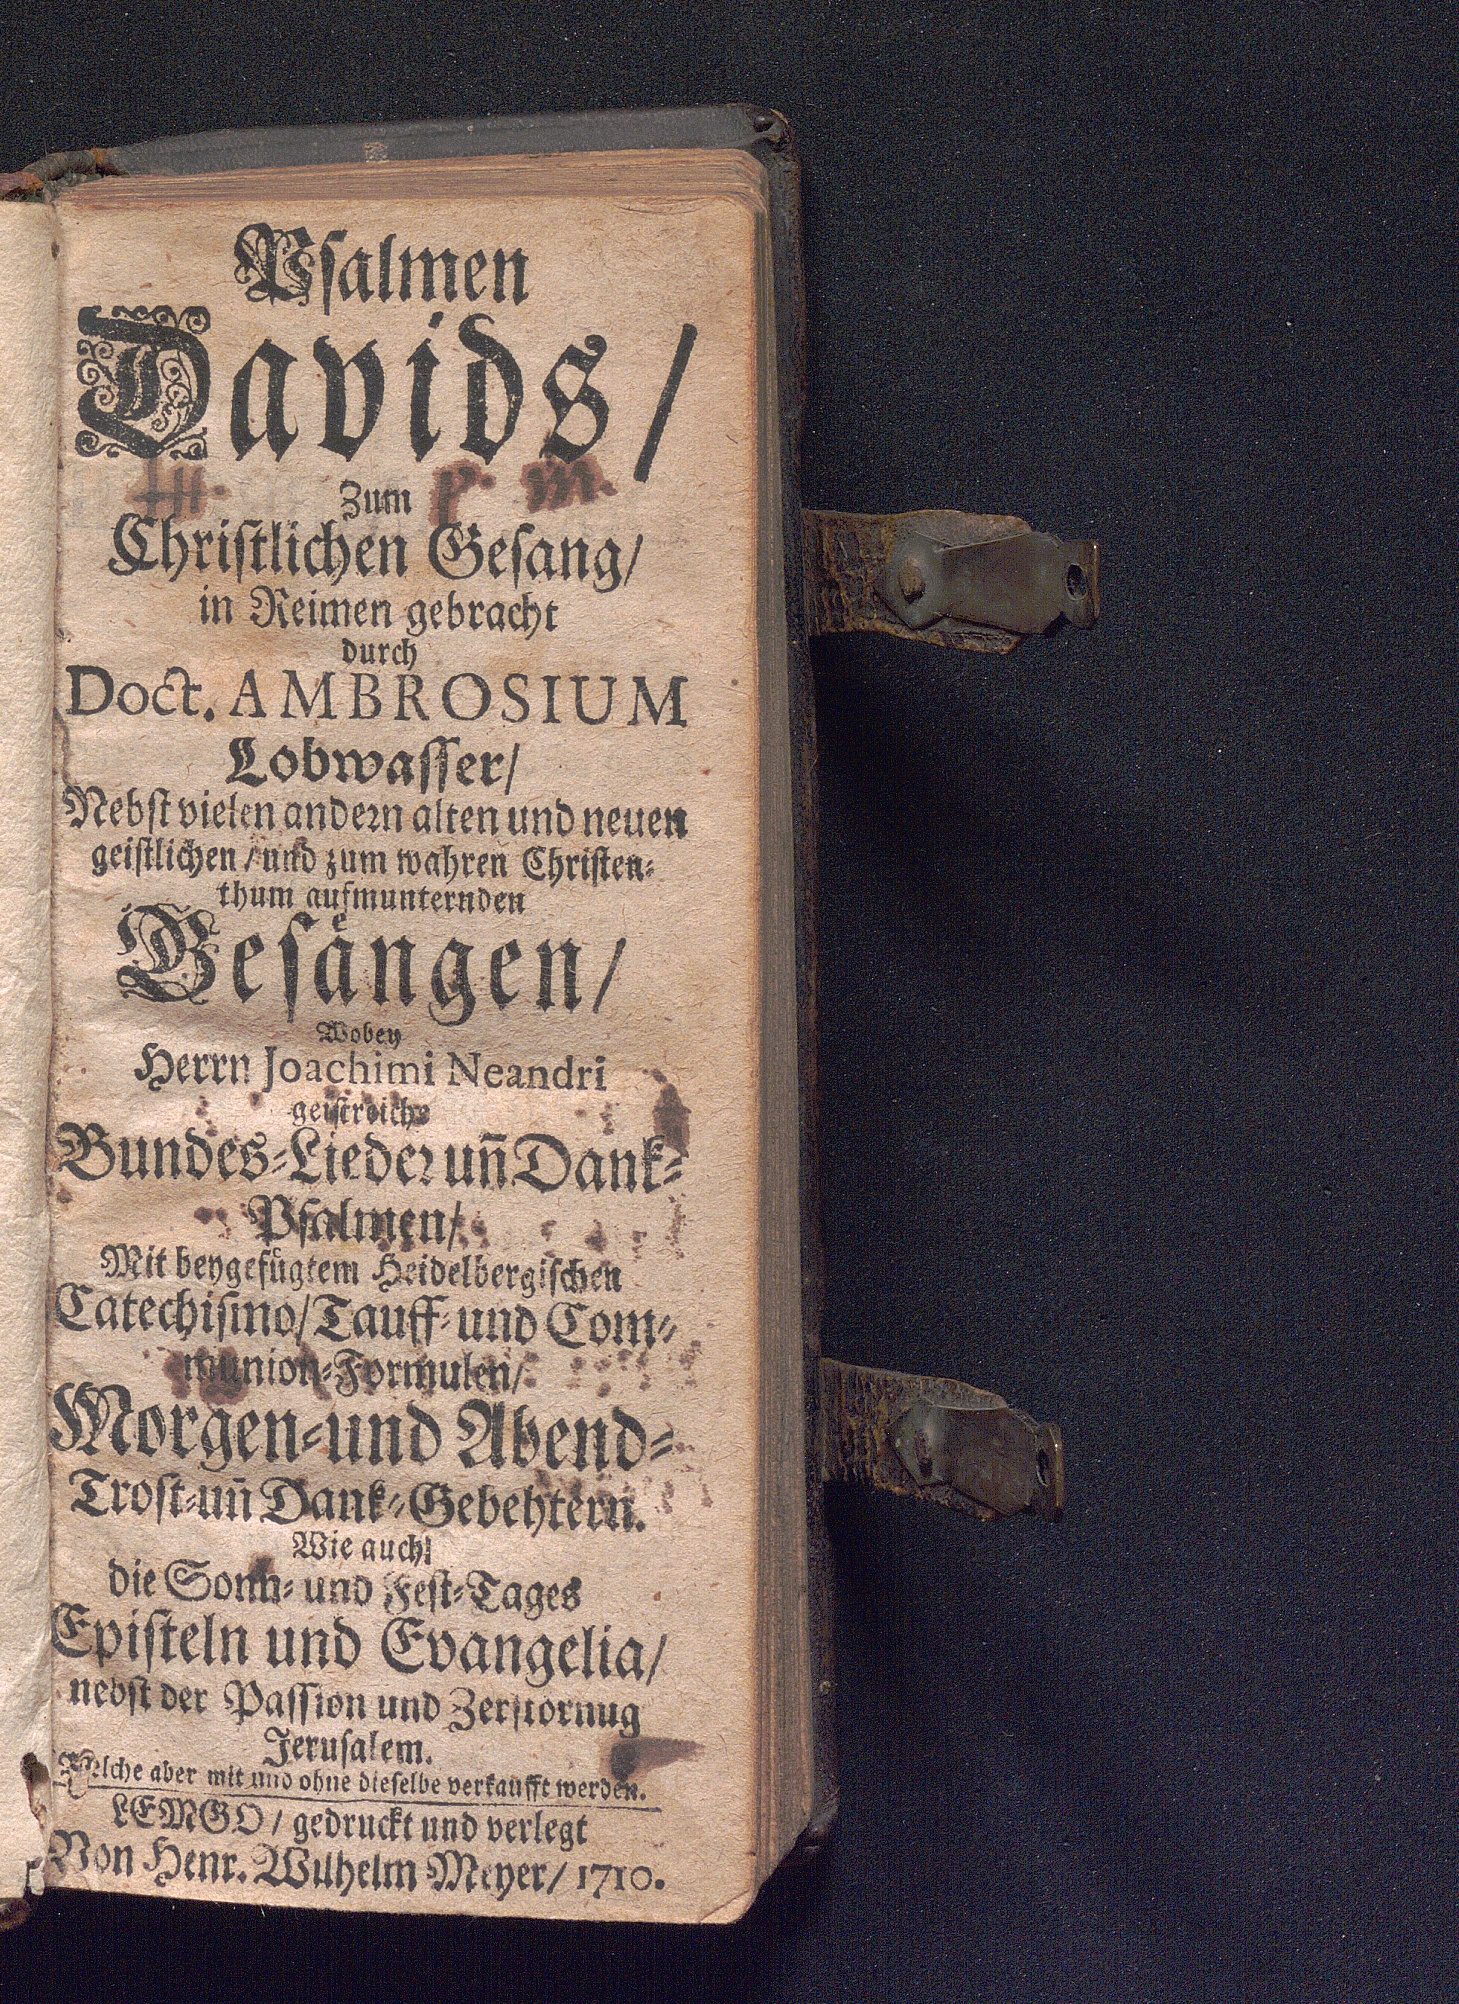 Psalmen
Davids/
Zum
Christlichen Gesang/
in Reimen gebracht
durch
Doct. AMBROSIUM
Lobwasser/
Nebst vielen andern alten und neuen
geistlichen/ und zum wahren Christen-
thum aufmunternden
Gesängen/
Wobey
Herrn Joachimi Neandri
geistreiche
Bundes-Lieder uñ Dank-
Psalmen/
Mit beygefügtem Heidelbergischen
Catechismo/ Tauff- und Com-
munion-Formulen/
Morgen- und Abend-
Trost- uñ Dank-Gebehtern.
Wie auch
die Sonn- und Fest-Tages
Episteln und Evangelia/
nebst der Passion und Zerstornug
Jerusalem.
Welche aber mit und ohne dieselbe verkaufft werden.
LEMGO/ gedruckt und verlegt
Von Henr. Wilhelm Meyer/ 1710.